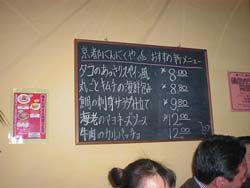 京都にんにくや おすすめ メニュー
タコのあっさりスパイシー風 ¥8.00
丸ごとキムチの海鮮包み ¥8.00
鯛の刺身サラダ仕立て ¥9.80
海老のマヨネーズソース ¥12.00
牛肉のカルパッチョ 12.00